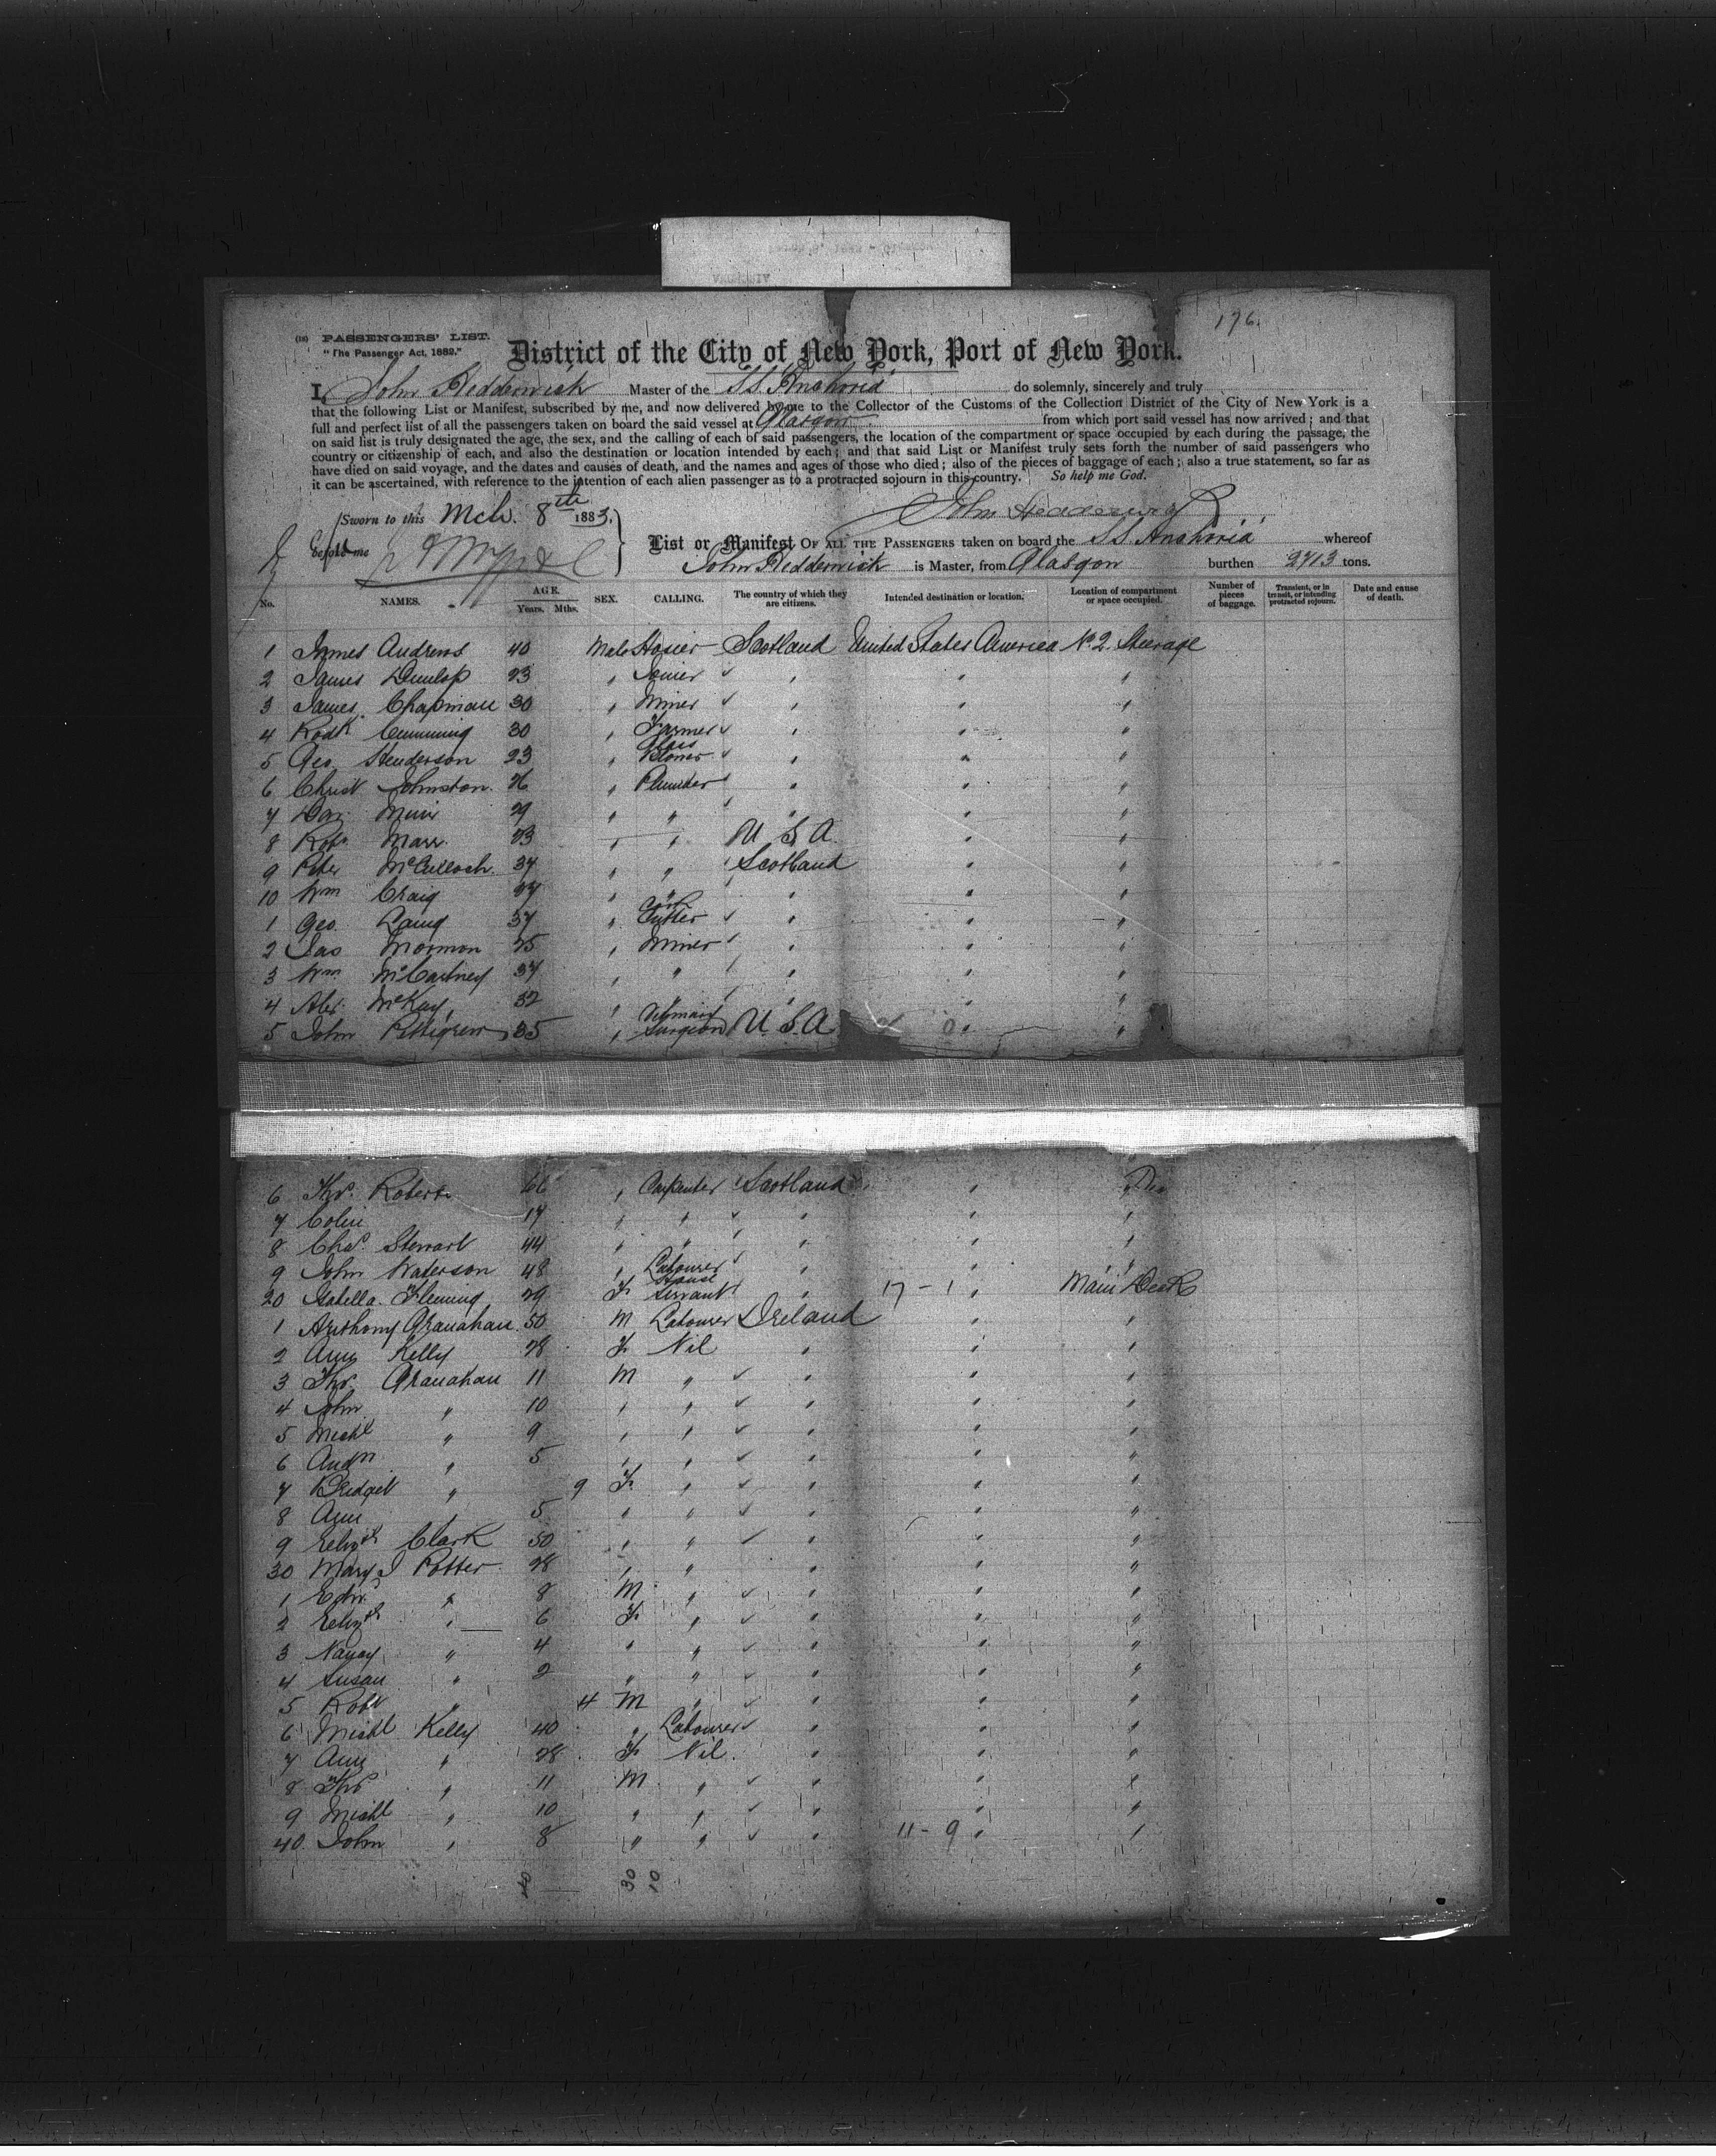 196.
(18) PASSENGERS' LIST.
"The Passenger Act, 1882."
District of the City of New York, Port of New York.
I, John Hedderwick Master of the S.S. Anchoria do solemnly, sincerely and truly
that the following List or Manifest, subscribed by me, and now delivered by me to the Collector of the Customs of the Collection District of the City of New York is a
full and perfect list of all the passengers taken on board the said vessel at Glasgow from which port said vessel has now arrived; and that
on said list is truly designated the age, the sex, and the calling of each of said passengers, the location of the compartment or space occupied by each during the passage, the
country or citizenship of each, and also the destination or location intended by each; and that said List or Manifest truly sets forth the number of said passengers who
have died on said voyage, and the dates and causes of death, and the names and ages of those who died; also of the pieces of baggage of each; also a true statement, so far as
it can be ascertained, with reference to the intention of each alien passenger as to a protracted sojourn in this country. So help me God.
Sworn to this Mch. 8th 1883. John Hedderwick
before me
List or Manifest OF ALL THE PASSENGERS taken on board the S.S. Anchoria whereof
John Hedderwick is Master, from Glasgow burthen 2713 tons.
No. NAMES. AGE. Years. Mths. SEX. CALLING. The country of which they are citizens. Intended destination or location. Location of compartment or space occupied. Number of pieces of baggage. Transient, or in transit, or intending protracted sojourn. Date and cause of death.
1 James Andrews 40 Male Hosier Scotland United States America No 2. Steerage
2 James Dunlop 23 " Joiner " " "
3 James Chapman 30 " Miner " " "
4 Rodk Cumming 30 " Farmer " " "
5 Geo. Henderson 23 " Glass Blower " " "
6 Christ Johnston 26 " Plumber " " "
7 Dav. Muir 29 " " " " "
8 Robt Marr 23 " " U.S.A. " "
9 Peter McCulloch 37 " " Scotland " "
10 Wm Craig 27 " " " " "
1 Geo. Laing 37 " Cork Cutter " " "
2 Jas Mormon 25 " Miner " " "
3 Wm McCartney 37 " " " " "
4 Alex. McKay 32 " " " " "
5 John Pettigrew 35 " Surgeon U.S.A. " "
6 Thos. Roberts 66 " Carpenter Scotland " "
7 Colin 17 " " " " "
8 Chas. Stewart 44 " " " " "
9 John Waterson 48 " Labourer " " "
20 Isabella Fleming 29 F. House Servant " 17 - 1 " Main Deck
1 Anthony Granahan 50 M Labourer Ireland " "
2 Ann Kelly 28 F. Nil " " "
3 Thos. Granahan 11 M " " " "
4 John " 10 " " " " "
5 Michl " 9 " " " " "
6 Andw " 5 " " " " "
7 Bridget " 9 F. " " " "
8 Ann " 5 " " " " "
9 Elizth Clark 50 " " " " "
30 Mary J Potter 28 " " " " "
1 Edw. " 8 M " " " "
2 Elizth " 6 F. " " " "
3 Nancy " 4 " " " " "
4 Susan " 2 " " " " "
5 Robt " 4 M " " " "
6 Michl Kelly 40 " Labourer " " "
7 Ann " 28 F. Nil. " " "
8 Thos " 11 M " " " "
9 Michl " 10 " " " " "
40 John " 8 " " " 11 - 9 " "
40 30 10